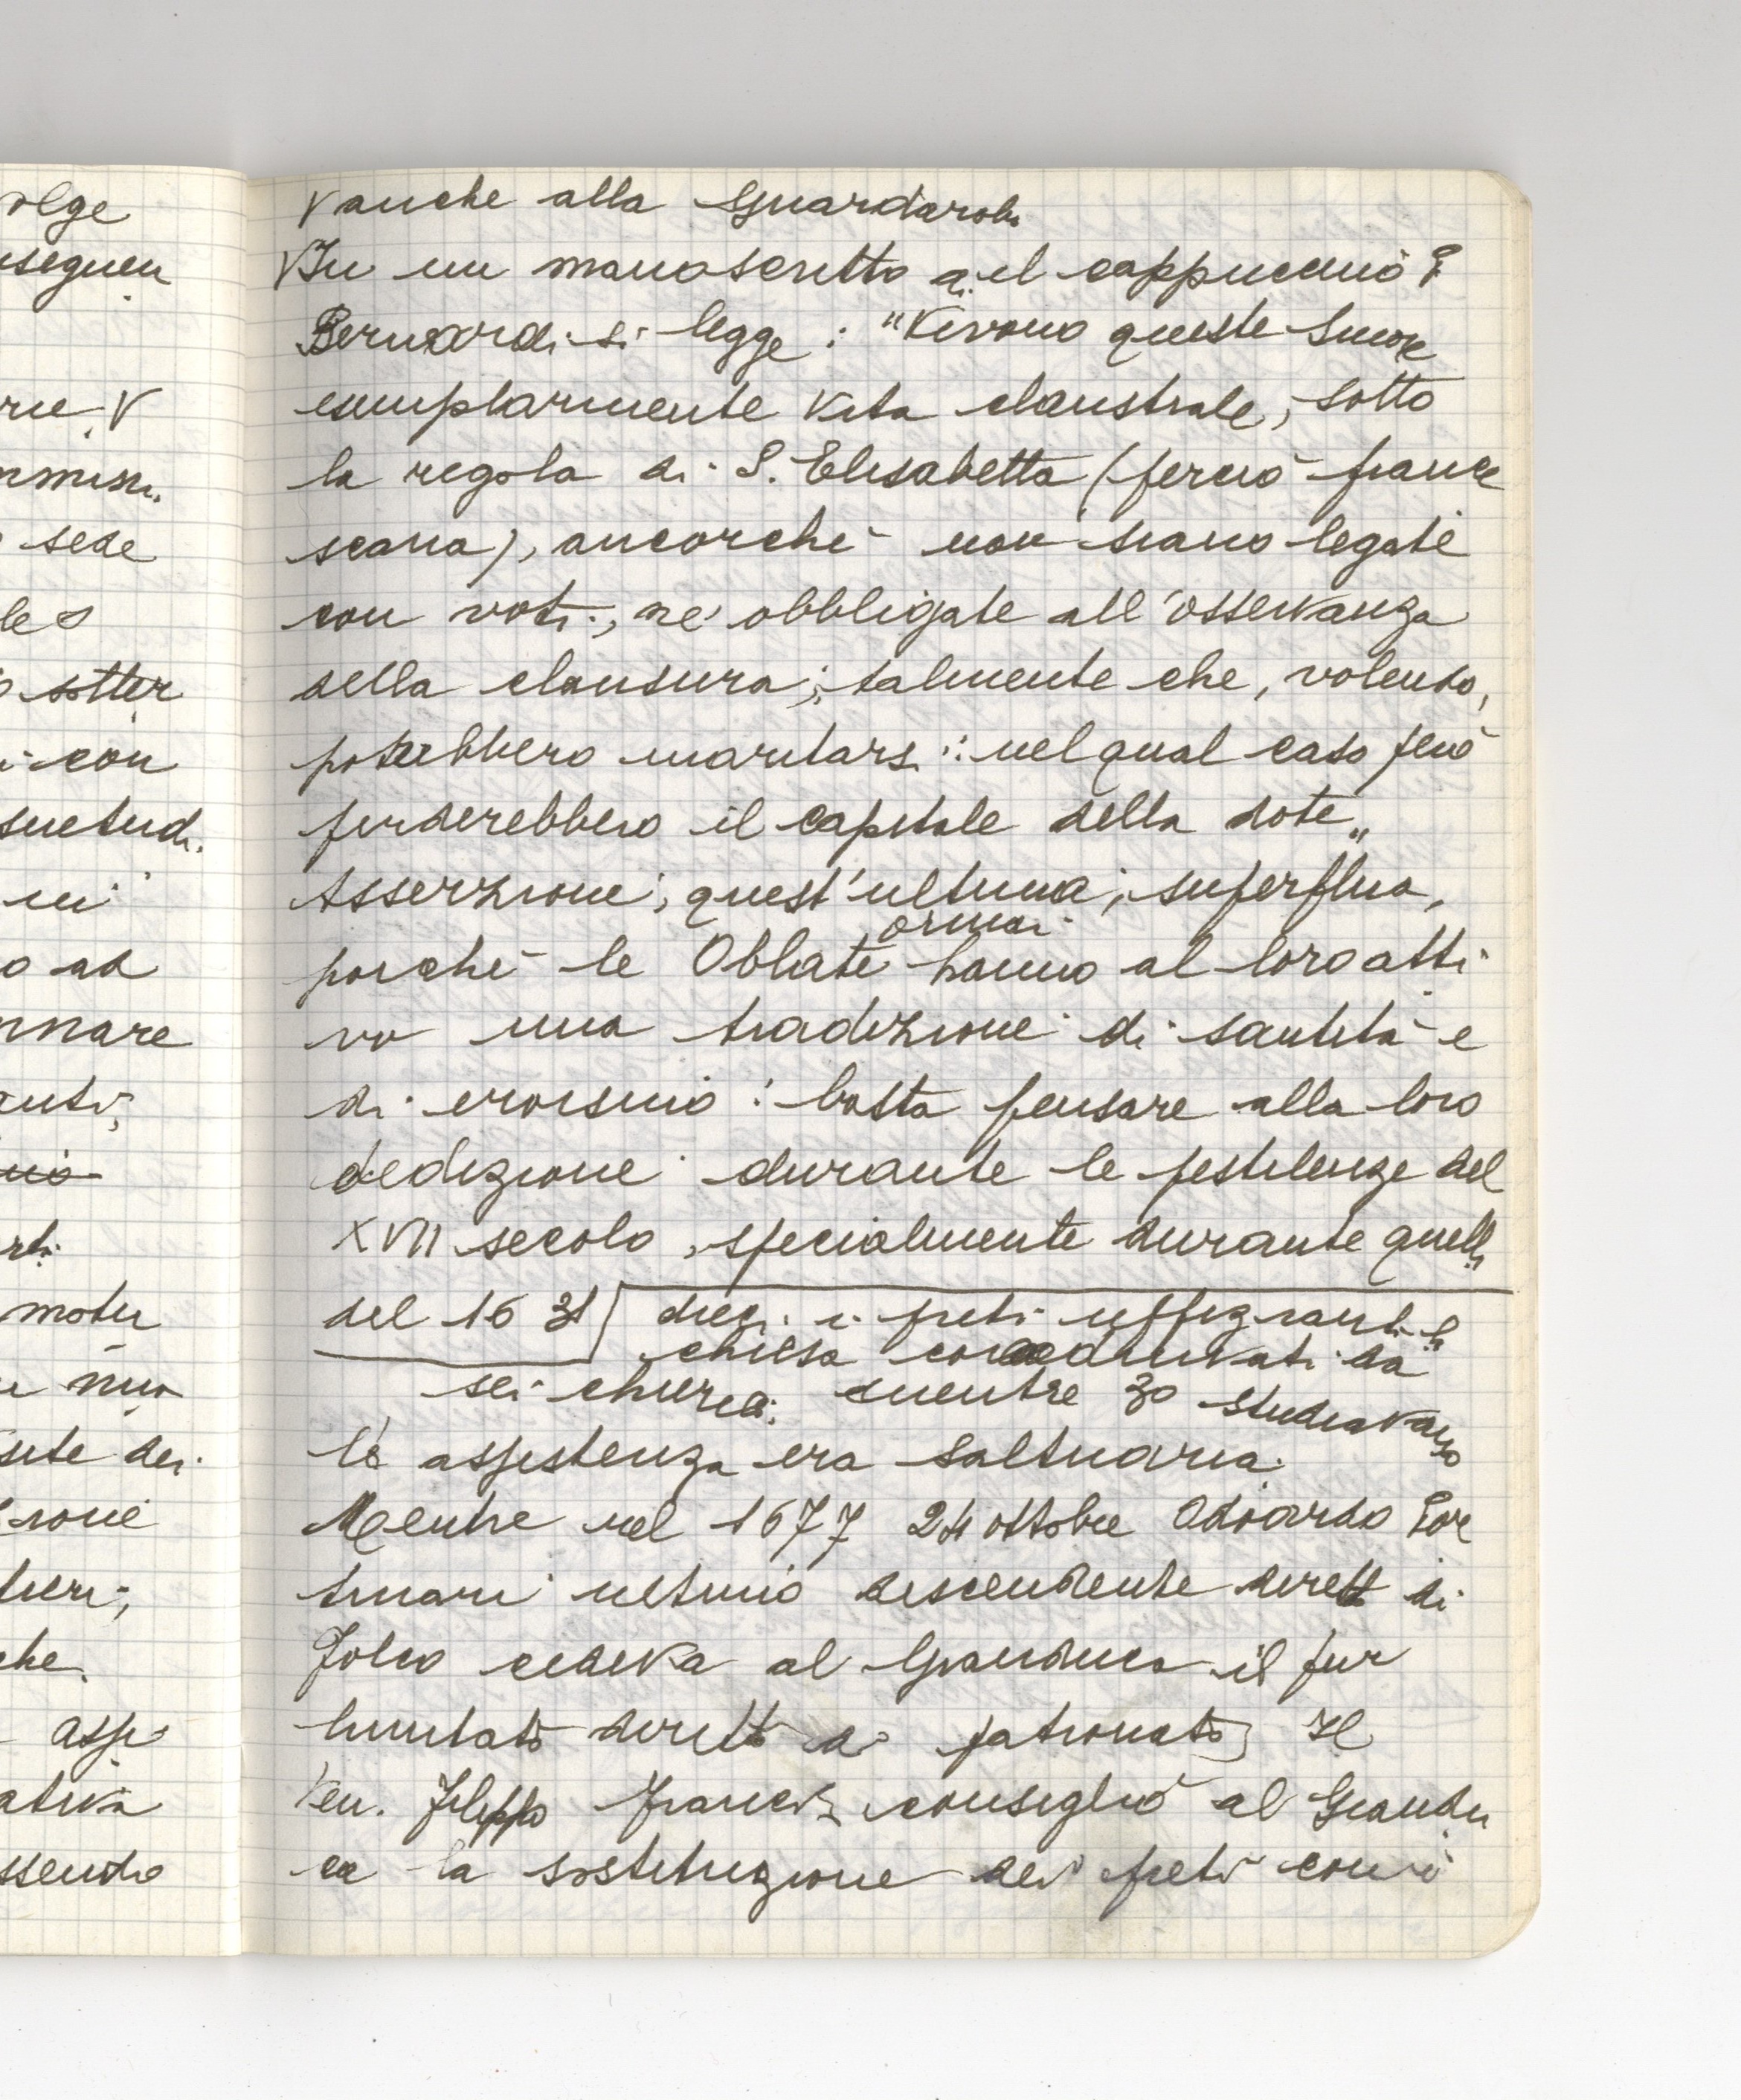 olge
nseguen
rie. V
mmini.
sede
les
sotter
i con
suetud.
ni
o ad
nnare
anti;
nio
rti
motu
nuo
site dei
zione
che.
assi
ativa
ssendo
V anche alla Guardaroba
V In un manoscritto del cappuccino P.
Bernardi si legge: "Vivono queste Suore
esemplarmente vita claustrale, sotto
la regola di S. Elisabetta (terzio france
scana), ancorché non siano legate
con voti, né obbligate all'osservanza
della clausura; talmente che, volendo,
potrebbero maritarsi: nel qual caso però
perderebbero il capitale della dote"
Asserzione, quest'ultima, superflua,
ormai
poiché le Oblate hanno al loro atti
vo una tradizione di santità e
di eroismo: basta pensare alla loro
dedizione durante le pestilenze del
XVII secolo, specialmente durante quella
del 1631 dieci i preti uffizianti la
chiesa coadiuvati da
sei chierici mentre 30 studiavano
la assistenza era saltuaria.
Mentre nel 1677 24 ottobre Odoardo Por
tinari ultimo discendente diretto di
Folco cedeva al Granduca il pur
limitato diritto di patronato] Il
Ven. Filippo Franci consigliò al Grandu
ca la sostituzione dei preti con i